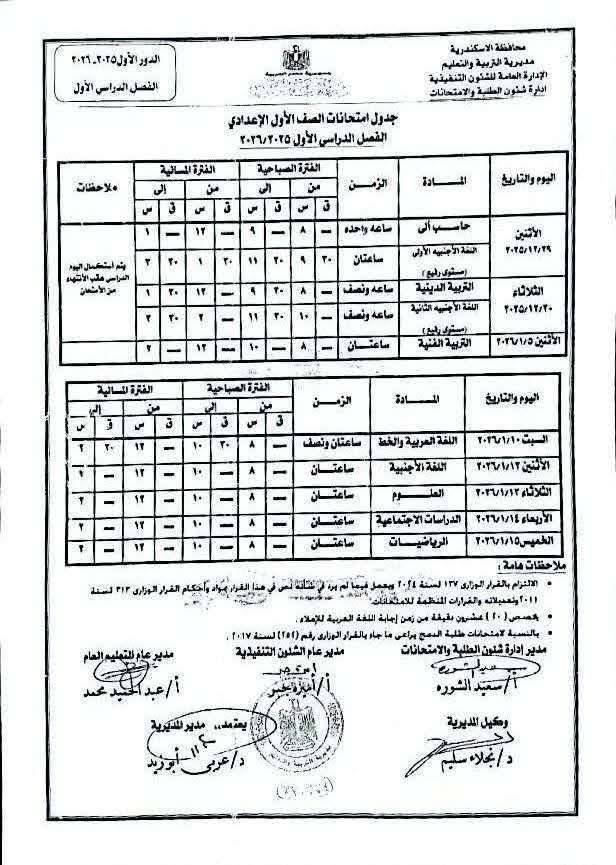 محافظة الاسكندرية
مديرية التربية والتعليم
الإدارة العامة للشئون التنفيذية
إدارة شئون الطلبة والامتحانات
الدور الأول ٢٠٢٥ـ ٢٠٢٦
الفصل الدراسي الأول
جدول امتحانات الصف الأول الإعدادي
الفصل الدراسي الأول ٢٠٢٦/٢٠٢٥
اليوم والتاريخ | المــادة | الزمـن | الفترة الصباحية | الفترة المسائية | ملاحظات
من | إلى | من | إلى
ق | س | ق | س | ق | س | ق | س
الأثنين ٢٠٢٥/١٢/٢٩ | حاسب ألى | ساعه واحده | — | ٨ | — | ٩ | — | ١٢ | — | ١
اللغة الأجنبيه الأولى (مستوى رفيع) | ساعتان | ٣٠ | ٩ | ٣٠ | ١١ | ٣٠ | ١ | ٣٠ | ٣
الثلاثاء ٢٠٢٥/١٢/٣٠ | التربية الدينية | ساعه ونصف | — | ٨ | ٣٠ | ٩ | — | ١٢ | ٣٠ | ١
اللغة الأجنبيه الثانية (مستوى رفيع) | ساعه ونصف | — | ١٠ | ٣٠ | ١١ | — | ٢ | ٣٠ | ٣
الأثنين ٢٠٢٦/١/٥ | التربية الفنية | ساعتــان | — | ٨ | — | ١٠ | — | ١٢ | — | ٢
يتم أستكمال اليوم
الدراسي عقب الأنتهاء
من الأمتحان
اليوم والتاريخ | المــادة | الزمـن | الفترة الصباحية | الفترة المسائية
من | إلى | من | إلى
ق | س | ق | س | ق | س | ق | س
السبت ٢٠٢٦/١/١٠ | اللغة العربية والخط | ساعتان ونصف | — | ٨ | ٣٠ | ١٠ | — | ١٢ | ٣٠ | ٢
الأثنين ٢٠٢٦/١/١٢ | اللغة الأجنبية | ساعتــان | — | ٨ | — | ١٠ | — | ١٢ | — | ٢
الثلاثاء ٢٠٢٦/١/١٣ | العلــوم | ساعتــان | — | ٨ | — | ١٠ | — | ١٢ | — | ٢
الأربعاء ٢٠٢٦/١/١٤ | الدراسات الاجتماعية | ساعتــان | — | ٨ | — | ١٠ | — | ١٢ | — | ٢
الخميس ٢٠٢٦/١/١٥ | الرياضيـات | ساعتــان | — | ٨ | — | ١٠ | — | ١٢ | — | ٢
ملاحظات هامة :
• الالتزام بالقرار الوزارى ١٣٧ لسنة ٢٠٢٤ ويعمل فيما لم يرد في شأنه نص في هذا القرار بمواد وأحكام القرار الوزارى ٣١٣ لسنة
٢٠١١ وتعديلاته والقرارات المنظمة للامتحانات.
• يخصص (٢٠) عشرون دقيقة من زمن إجابة اللغة العربية للإملاء.
• بالنسبة لامتحانات طلبة الدمج يراعى ما جاء بالقرار الوزارى رقم (٢٥٢) لسنة ٢٠١٧.
مدير إدارة شئون الطلبة والامتحانات
أ/ سعيد الشوره
مدير عام الشئون التنفيذية
أ/ أميرة جبر
مدير عام للتعليم العام
أ/ عبد الحميد محمد
وكيل المديرية
د/ نجلاء سليم
يعتمد،، مدير المديرية
د/ عربى أبوزيد